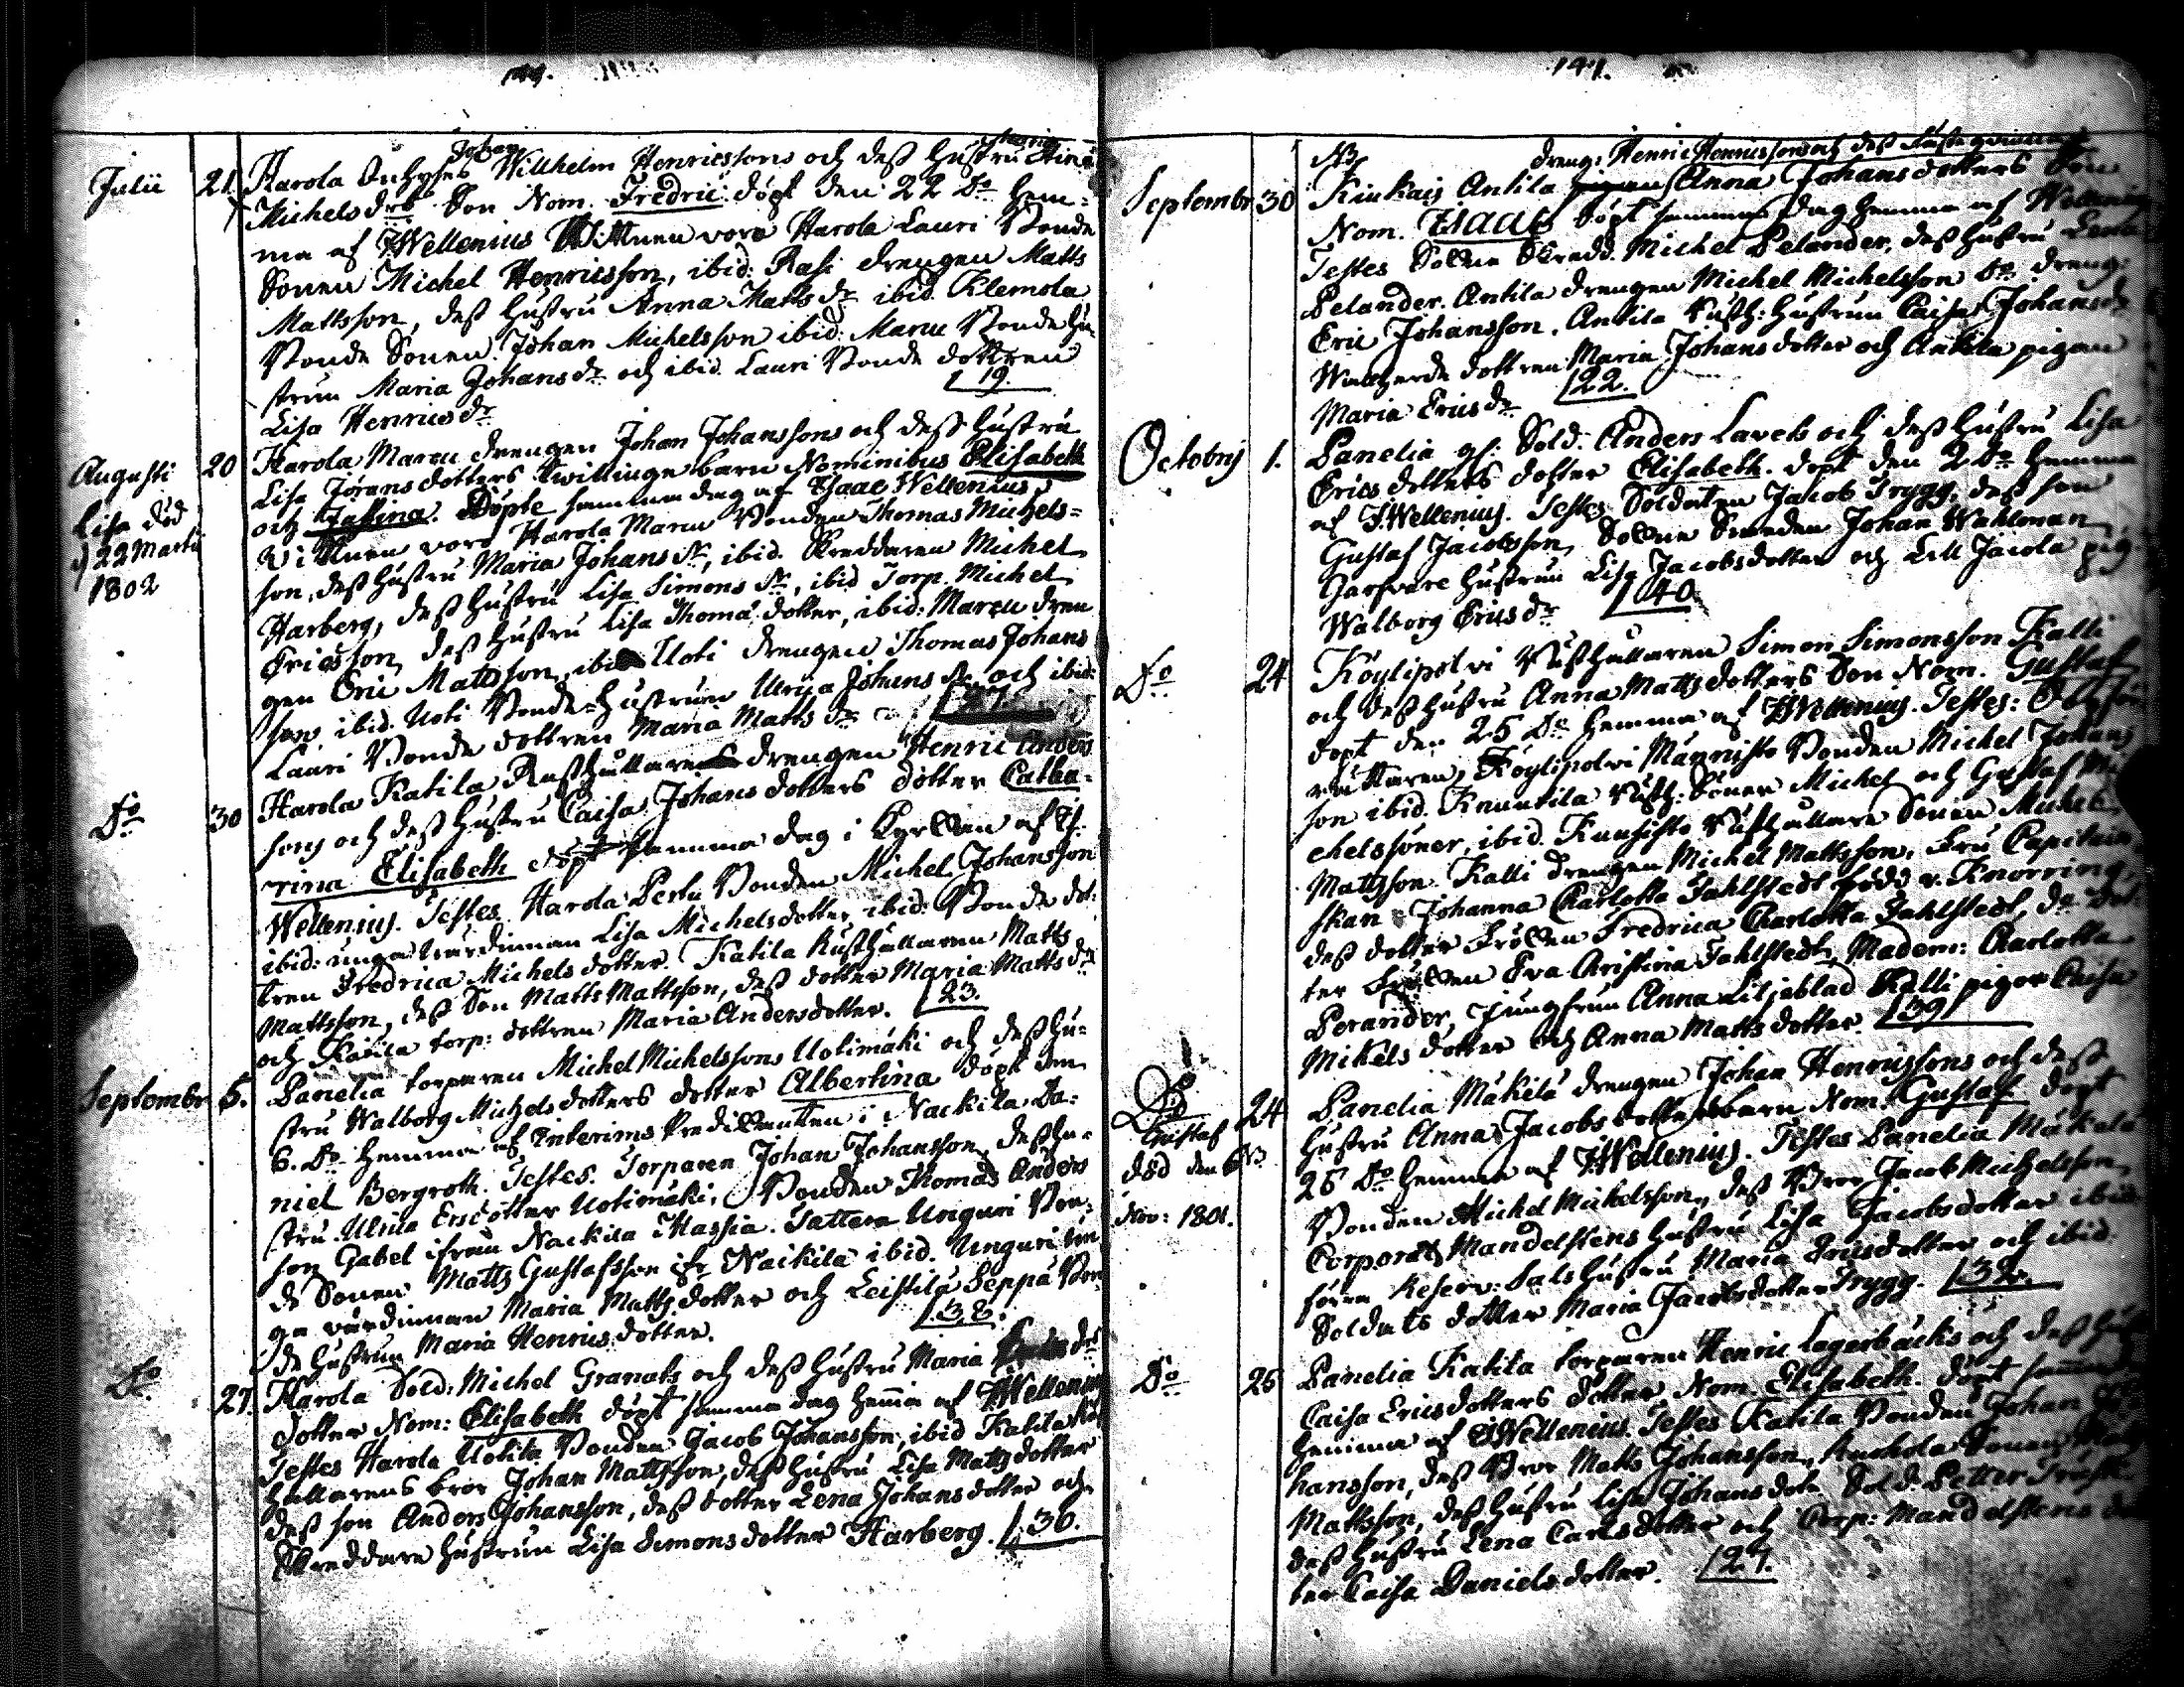 Johan Maria
Julii 21. Harola Inhyses Willhelm Henricssons och dess Hustru Stina
Michels drs Son Nom. Fredric döpt den 22 Do hem-
ma af IWellenius Wittnen voro Harola Lauri Bonde
Sonen Michel Henricsson, ibid: Rasi drengen Matts
Mattsson, dess Hustru Anna Matts dr ibid. Klemola
Bonde Sonen Johan Michelsson ibid: Marcu Bonde Hu-
strun Maria Johans dr och ibid. Lauri Bonde dottren
Lisa Henrics dr 19.
Augusti 20 Harola Marcu drengen Johan Johanssons och dess Hustru
Lisa Jörans dotters Twillinge barn Nominibus Elisabeth
och Josefina. Döpte samma dag af Isaac Wellenius.
Lisa död
d 22 Martii
1802
Wittnen voro Harola Marcu Bonden Thomas Michels-
son, dess Hustru Maria Johans dr, ibid. Skreddaren Michel
Harberg, dess Hustru Lisa Simons dr, ibid Torp. Michel
Ericsson, dess Hustru Lisa Thomæ dotter, ibid: Marcu dren
gen Eric Mattsson, ibid Uoti drengen Thomas Johans
son ibid. Uoti Bonde-Hustrun Ulrica Johans dr och ibid:
Lauri Bonde dottren Maria Matts dr
Do 30 Harola Katila Rusthållare drengen Henric Anders
sons och dess Hustru Caisa Johans dotters dotter Catha-
rina Elisabeth döpt samma dag i Kyrkan af Is.
Wellenius. Testes Harola Pertu Bonden Michel Johansson
ibid: unga wärdinnan Lisa Michelsdotter ibid: Bonde dot-
tren Fredrica Michels dotter. Katila Rusthållaren Matts
Mattsson, dess Son Matts Mattsson, dess dotter Maria Matts dr
och Katila torp: dottren Maria Andersdotter. 23.
Septembr 5. Panelia torparen Michel Michelssons Uotimäki och dess Hu-
stru Walborg Michels dotters dotter Albertina döpt den
6. Do hemma af Interims Predikanten i Nackila Da-
niel Bergroth. Testes. Torparen Johan Johansson, dess Hu-
stru Ulrica Ersdotter Uotimäki, Bonden Thomas Anders
son Gabel ifrån Nackila Massia. Tattera Unguri Bon-
de Sonen Matts Gustafsson ifr Nackila ibid. Unguri un
ga wärdinnan Maria Matts dotter och Leistilä Seppä Bon
de Hustrun Maria Henrics dotter. 38.
Do 27. Harola Sold: Michel Granats och dess Hustru Maria drs
dotter Nom: Elisabeth döpt samma dag hema af IWellenius
Testes Harola Uotila Bonden Jacob Johansson, ibid Katila Rust
hållarens bror Johan Mattsson, dess Hustru Lisa Matts dotter
dess son Anders Johansson, dess dotter Lena Johans dotter och
Skreddare Hustrun Lisa Simons dotter Harberg. 36.
141.
NB dreng: Henric Henricssons och dess
Septembr 30 Kiukais Antila Anna Johans dotters Son
Nom. Isaac döpt samma dag hemma af Wellenius
Testes Sockne Skredd. Michel Pelander, dess Hustru
Pelander. Antila drengen Michel Michelsson Do dreng:
Eric Johansson. Antila Rusth: Hustrun Caisa Johans dr
dottren Maria Johans dotter och Antila pigan
Maria Erics dr 22.
Octobris 1. Panelia gf: Sold: Anders Lavets och dess Hustru Lisa
Erics dotters dotter Elisabeth. döpt den 2 Do hemma
af IWellenius. Testes Soldaten Jacob Trygg, dess son
Gustaf Jacobsson, Sockne Smeden Johan Wahlman
Garfware Hustrun Lisa Jacobsdotter och Lill Jacola pig.
Walborg Erics dr 40.
Do 24 Köylipolvi Rusthållaren Simon Simonsson Kalli
och dess Hustru Anna Matts dotters Son Nom. Gustaf
döpt den 25 Do hemma af IWellenius. Testes:
Köylipolvi Männistö Bonden Michel Johans
son ibid. Knuutila Rusth: Söner Michel och Gustaf Mi
chelssöner, ibid. Kuusisto Rusthållare Sonen Michel
Mattsson. Kalli drengen Michel Mattsson, Fru Capitain
skan Johanna Charlotta Jahlstedt född v. Knorring,
dess dotter Fröken Fredrica Charlotta Jahlstedt, Do Dot-
ter Fröken Eva Christina Jahlstedt, Madem: Charlotta
Perander, Jungfrun Anna Liljeblad Kalli pigor Caisa
Mikels dotter och Anna Matts dotter 39
Do 24 Panelia Mäkilä drengen Johan Henricssons och dess
Gustaf
död den 6
Nov: 1801.
Hustru Anna Jacobs dotters barn Nom. Gustaf döpt
25 Do hemma af IWellenius. Testes Panelia Mäkelä
Bonden Michel Michelsson, dess Bror Jacob Michelsson
Corporals Mandelstens Hustru Lisa Jacobsdotter ibid
förra Reserv: Sals Hustru Maria Ericsdotter och ibid.
Soldats dotter Maria Jacobsdotter Trygg. 32.
Do 25 Panelia Katila torparen Henric Lagerbäcks och dess Hu
Caisa Ericsdotters dotter Nom. Elisabeth. döpt samma
hemma af IWellenius. Testes Katila Bonden Johan Jo
hansson, dess Bror Matts Johansson, Sonen
Mattsson, dess Hustru Lisa Johans dotr Sold: Petter
dess Hustru Lena Carlsdotter och Corp: Mandelstens dot
ter Caisa Daniels dotter. 27.